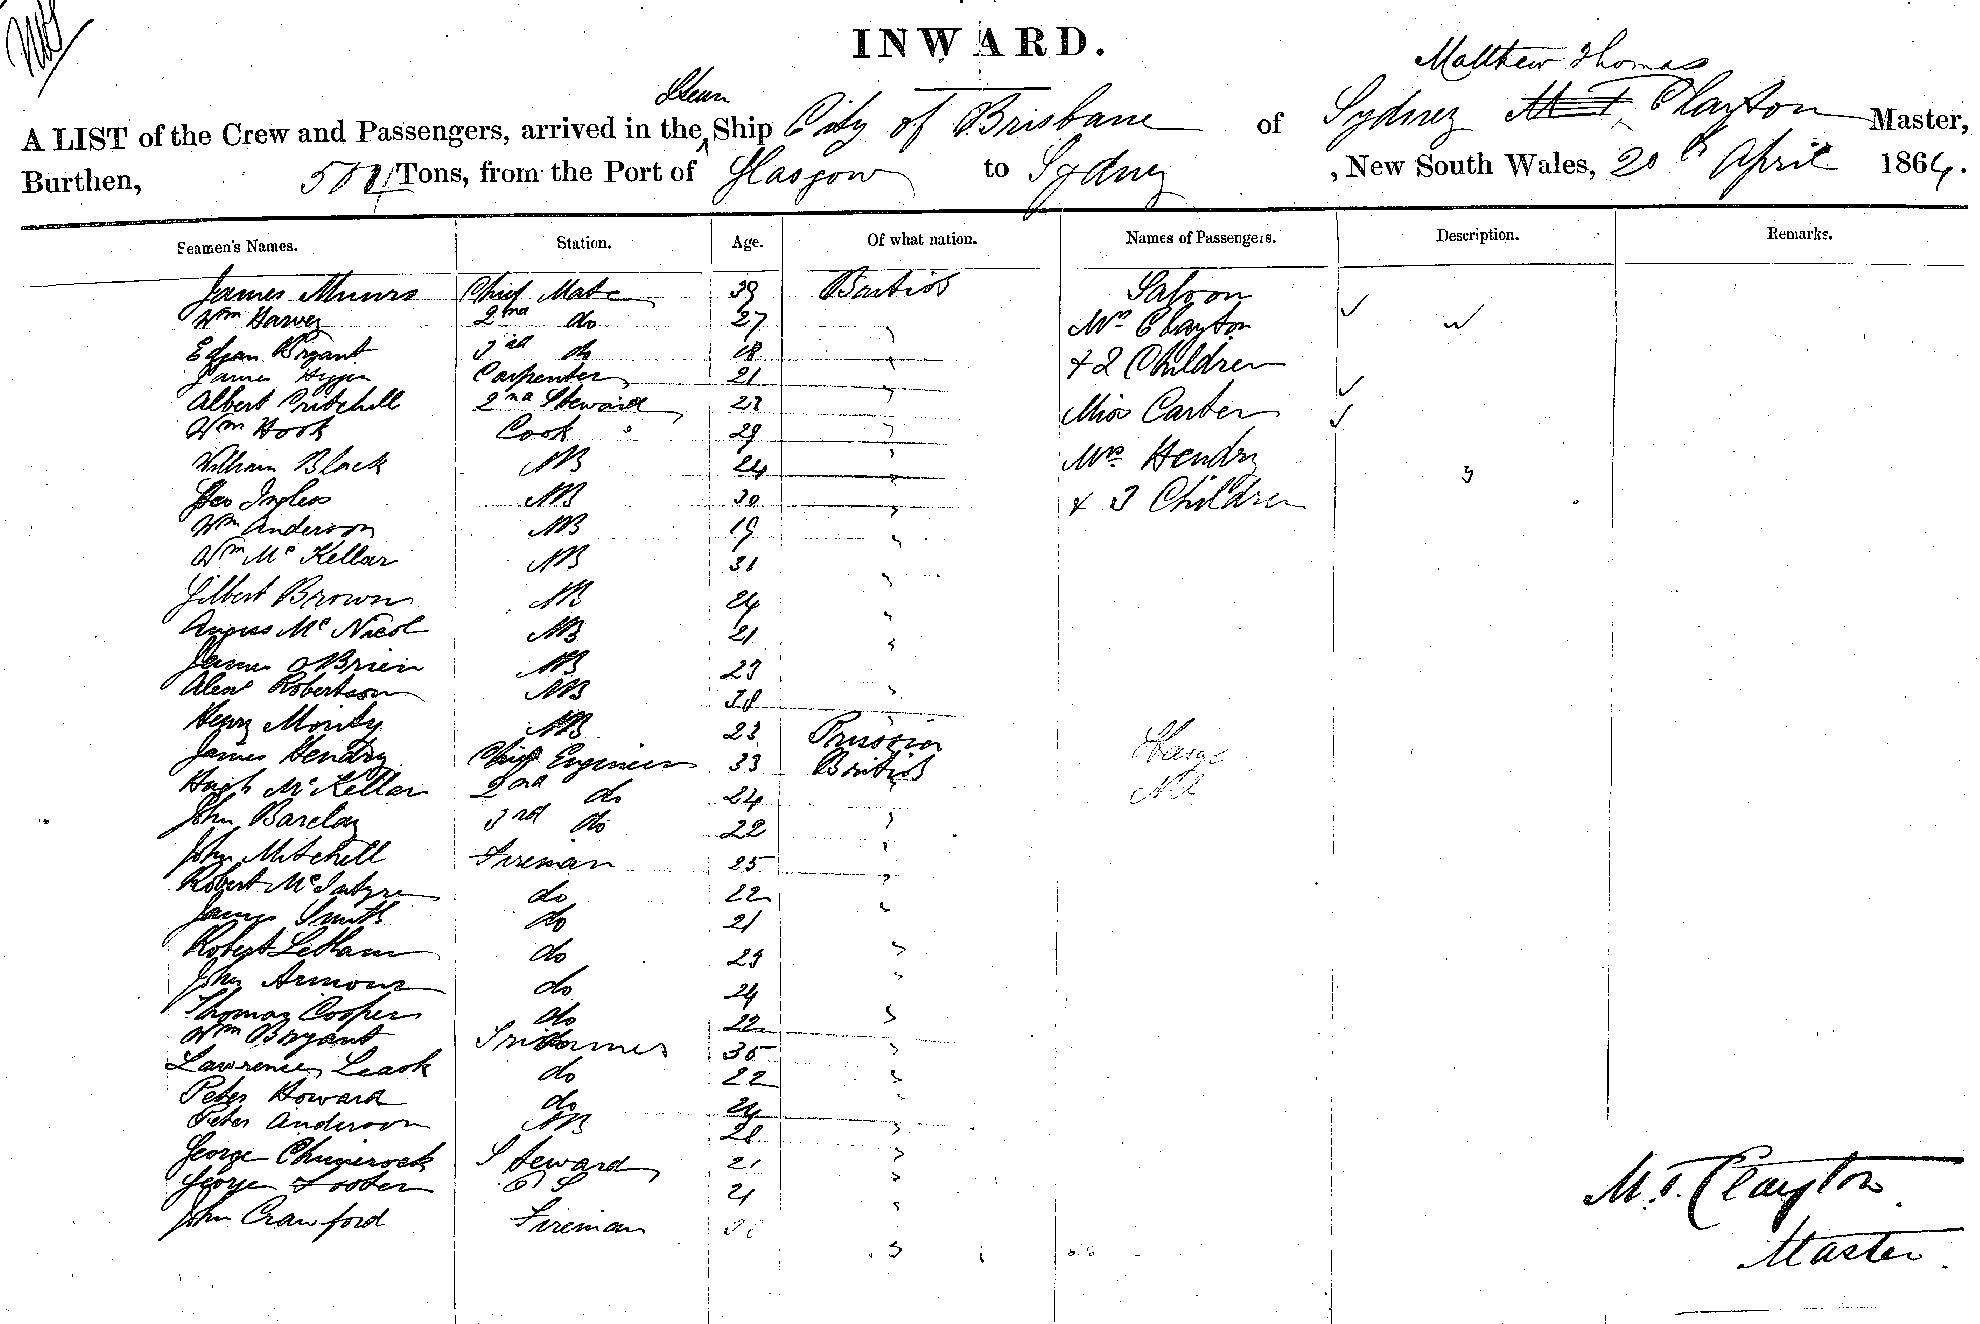 INWARD.
Matthew Thomas
Steam
A LIST of the Crew and Passengers, arrived in the Ship City of Brisbane of Sydney M T Clayton Master,
Burthen, 504 Tons, from the Port of Glasgow to Sydney, New South Wales, 20th April 1864.
Seamen's Names. Station. Age. Of what nation. Names of Passengers. Description. Remarks.
James Munro Chief Mate 39 British Saloon
Wm Harvey 2nd do 27 " Mrs Clayton
Edgar Bryant 3rd do 18 " + 2 Children
James Carpenter 21 "
Albert Pritchell 2nd Steward 23 " Miss Carter
Wm Hook Cook 29 "
William Black AB 24 " Mrs Hendry
Geo Ingles AB 30 " + 3 Children
Wm Anderson AB 19 "
Wm McKellar AB 31 "
Gilbert Brown AB 24 "
Angus McNicol AB 21 "
James OBrien AB 23 "
Alexr Robertson AB 38 "
Henry AB 23 Prussian
James Hendry Chief Engineer 33 British
Hugh McKellar 2nd do 24 "
John Barclay 3rd do 22 "
John Mitchell Fireman 25 "
Robert McIntyre do 22 "
James Smith do 21 "
Robert Letham do 23 "
John Armour do 24 "
Thomas Cooper do 22 "
Wm Bryant Trimmer 35 "
Lawrence Leask do 22 "
Peter Howard do 24 "
Peter Anderson AB 28 "
George Steward 21 "
George Foster 21 "
John Crawford Fireman "
M. T. Clayton
Master